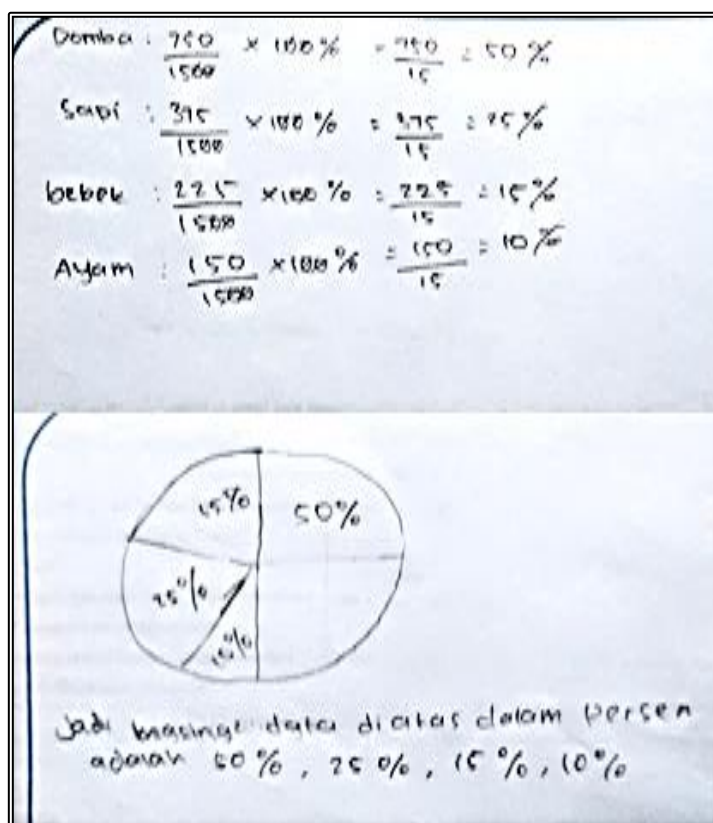 Domba : 750/1500 × 100% = 750/15 = 50%
Sapi : 375/1500 × 100% = 375/15 = 25%
bebek : 225/1500 × 100% = 225/15 = 15%
Ayam : 150/1500 × 100% = 150/15 = 10%
15% 50%
25%
15%
Jadi masing2 data diatas dalam persen
adalah 50%, 25%, 15%, 10%